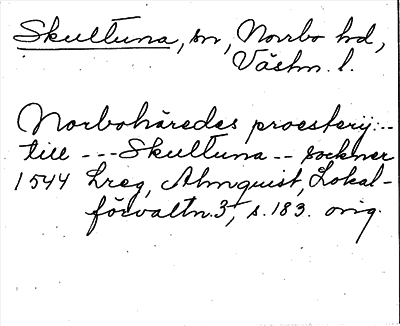 Skultuna, sn, Norrbo hd,
Västm. l.
Norbohäredes proesterij:--
till --- Skultuna -- sockner
1544 Lreg, Almquist, Lokal-
förvaltn. 3, s. 183. orig.